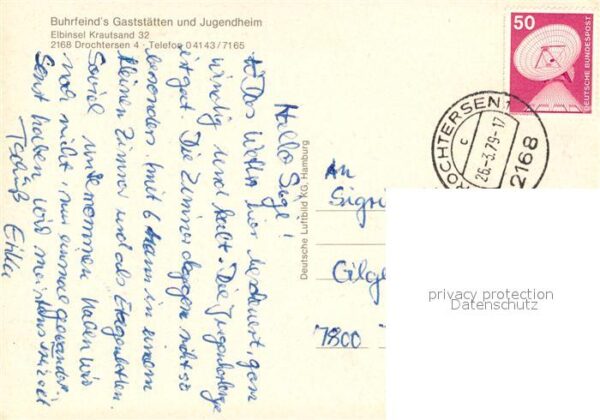 Buhrfeind's Gaststätten und Jugendheim
Elbinsel Krautsand 32
2168 Drochtersen 4 · Telefon 0 41 43 / 71 65
50
DEUTSCHE BUNDESPOST
DROCHTERSEN 1
c
26.-3.79-17
2168
Hallo
Das Wetter hier ist
windig und kalt. Die Jugendherberge
ist gut. Die Zimmer dagegen nicht so
besonders (mit 6 Mann in einem
kleinen Zimmer und als Etagenbetten.
Soviel unternommen haben wir
noch nicht, nur einmal gewandert.
Sonst haben wir meistens Freizeit
Erika
Deutsche Luftbild KG, Hamburg
An
7800
privacy protection
Datenschutz